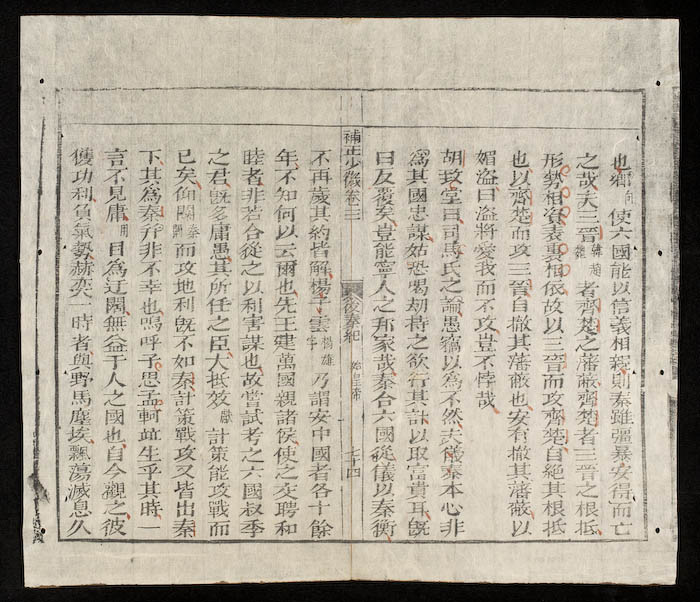 也鄉 向 使六國能以信義相親則秦雖彊暴安得而亡
之哉夫三晉 韓趙魏 者齊楚之藩蔽齊楚者三晉之根柢
形勢相資表裏相依故以三晉而攻齊楚自絕其根柢
也以齊楚而攻三晉自撤其藩蔽也安有撤其藩蔽以
媚盜曰盜將愛我而不攻豈不悖哉
胡致堂曰司馬氏之論愚竊以為不然夫儀秦本心非
為其國忠謀姑恐喝劫持之欲行其計以取富貴耳旣
曰反覆矣豈能寧人之邦家哉秦合六國從儀以秦衡
補正少微卷之三 後秦紀 始皇帝 七十四
不再歲其約皆解楊子雲 楊雄字 乃謂安中國者各十餘
年不知何以云爾也先王建萬國親諸侯使之交聘和
睦者非若合從之以利害謀也故嘗試考之六國叔季
之君旣多庸愚其所任之臣大抵效 計策能攻戰而
已矣仰關 秦關 而攻地利旣不如秦計策戰攻又皆出秦
下其為秦幷非不幸也嗚呼子思孟軻並生乎其時一
言不見庸 用 目為迂闊無益于人之國也自今觀之彼
獲功利負氣勢赫奕一時者與野馬塵埃飄蕩滅息久